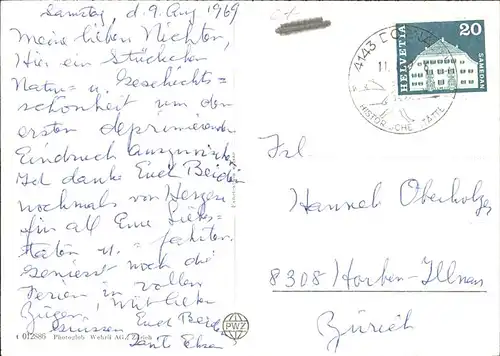 Samstag, d. 9. Aug 1969
Meine lieben Nichten,
Hier ein Stückchen
Natur- u. Geschichts=
schönheit um den
ersten deprimierenden
Eindruck auszuwischen.
Ich danke Euch Beiden
nochmals von Herzen
für all Eure Liebes-
taten u. - fahrten.
Geniesst noch die
Ferien in vollen
Zügen, mit lieben
Grüssen Euch Beiden
Tante
4143 DO
11.
HISTORISCHE STÄTTE
HELVETIA
20
SAMEDAN
Frl.
Hanneh Oberholzer
8308 Horben-Illnau
Zürich
PWZ
4 012886 Photoglob-Wehrli AG, Zürich